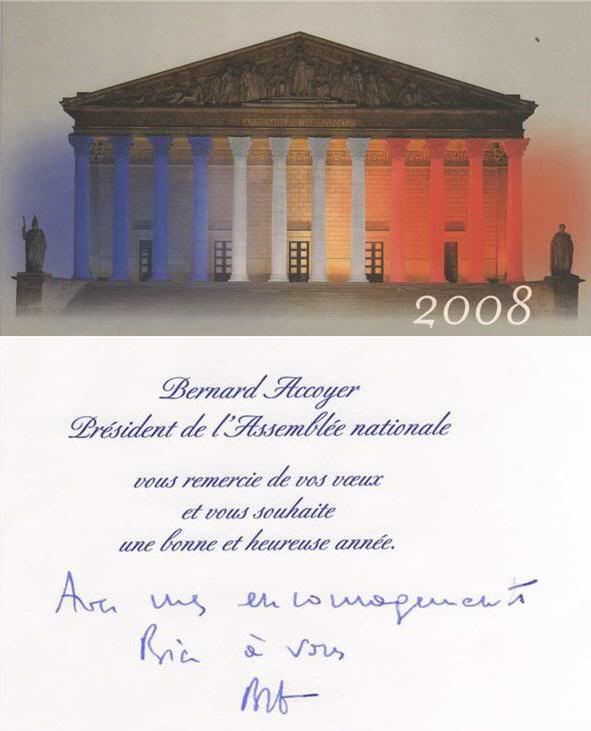 2008
Bernard Accoyer
Président de l'Assemblée nationale
vous remercie de vos vœux
et vous souhaite
une bonne et heureuse année.
Avec mes encouragements
Bien à vous